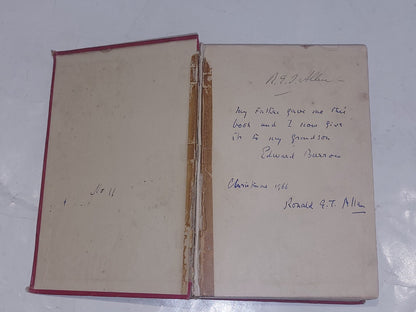 R. G. T. Allen
My Father gave me this
book and I now give
it to my grandson
Edward Burrow
No. 11
Christmas 1966
Ronald G. T. Allen